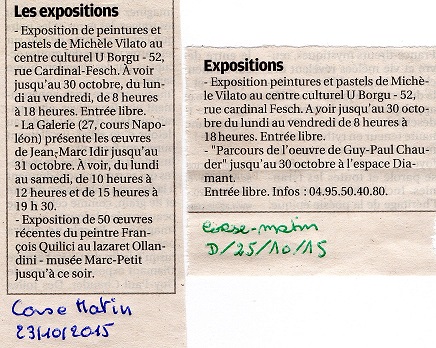 Les expositions
- Exposition de peintures et
pastels de Michèle Vilato au
centre culturel U Borgu - 52,
rue Cardinal-Fesch. À voir
jusqu'au 30 octobre, du lun-
di au vendredi, de 8 heures
à 18 heures. Entrée libre.
- La Galerie (27, cours Napo-
léon) présente les œuvres
de Jean-Marc Idir jusqu'au
31 octobre. À voir, du lundi
au samedi, de 10 heures à
12 heures et de 15 heures à
19 h 30.
- Exposition de 50 œuvres
récentes du peintre Fran-
çois Quilici au lazaret Ollan-
dini - musée Marc-Petit
jusqu'à ce soir.
Corse Matin
23/10/2015
Expositions
- Exposition peintures et pastels de Michè-
le Vilato au centre culturel U Borgu - 52,
rue cardinal Fesch. A voir jusqu'au 30 octo-
bre du lundi au vendredi de 8 heures à
18 heures. Entrée libre.
- "Parcours de l'oeuvre de Guy-Paul Chau-
der" jusqu'au 30 octobre à l'espace Dia-
mant.
Entrée libre. Infos : 04.95.50.40.80.
Corse-matin
D/25/10/15